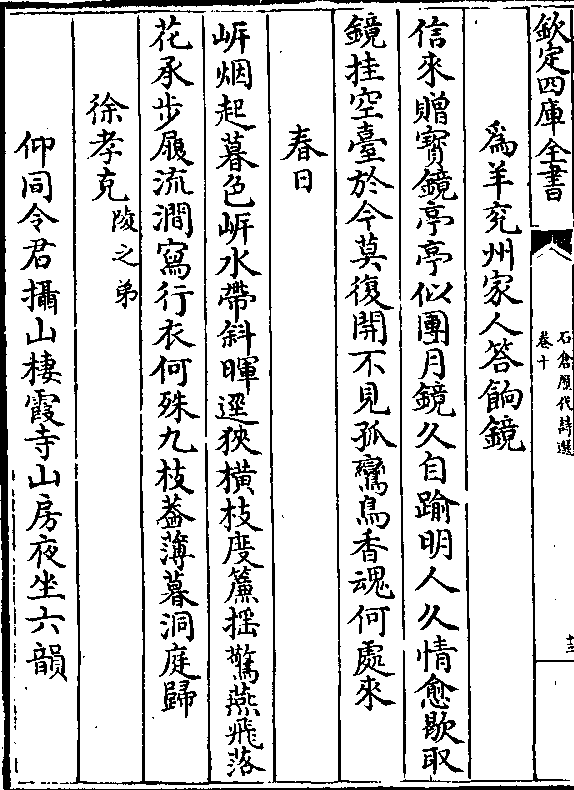 欽定四庫全書
石倉歷代詩選
卷十
十三
為羊兖州家人答餉鏡
信來贈寳鏡亭亭似團月鏡久自踰明人久情愈歇取
鏡挂空臺於今莫復開不見孤鸞鳥香魂何處來
春日
岍烟起暮色岍水帶斜暉逕狹橫枝度簾摇驚燕飛落
花承步履流澗寫行衣何殊九枝葢薄暮洞庭歸
徐孝克陵之弟
仰同令君攝山棲霞寺山房夜坐六韻